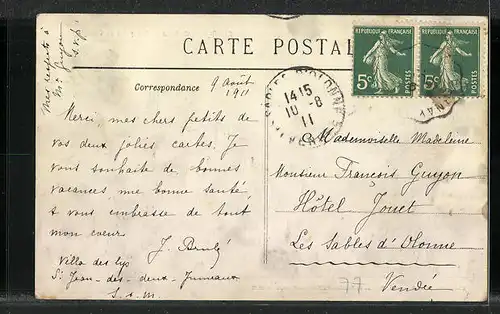 Mes respects à
Mr Guyon
S.V.P.
CARTE POSTAL
Correspondance
9 Août
1911
Merci, mes chers petits de
vos deux jolies cartes. Je
vous souhaite de bonnes
vacances une bonne santé
& vous embrasse de tout
mon coeur.
J.
Villa des lys
St Jean-des-deux-Jumeaux
S.&M.
RÉPUBLIQUE FRANÇAISE
5c
POSTES
RÉPUBLIQUE FRANÇAISE
5c
POSTES
SABLES D'OLONNE
14 15
10 -8
11
Mademoiselle Madeleine
Monsieur François Guyon
Hôtel Jouet
Les Sables d'Olonne
77
Vendée